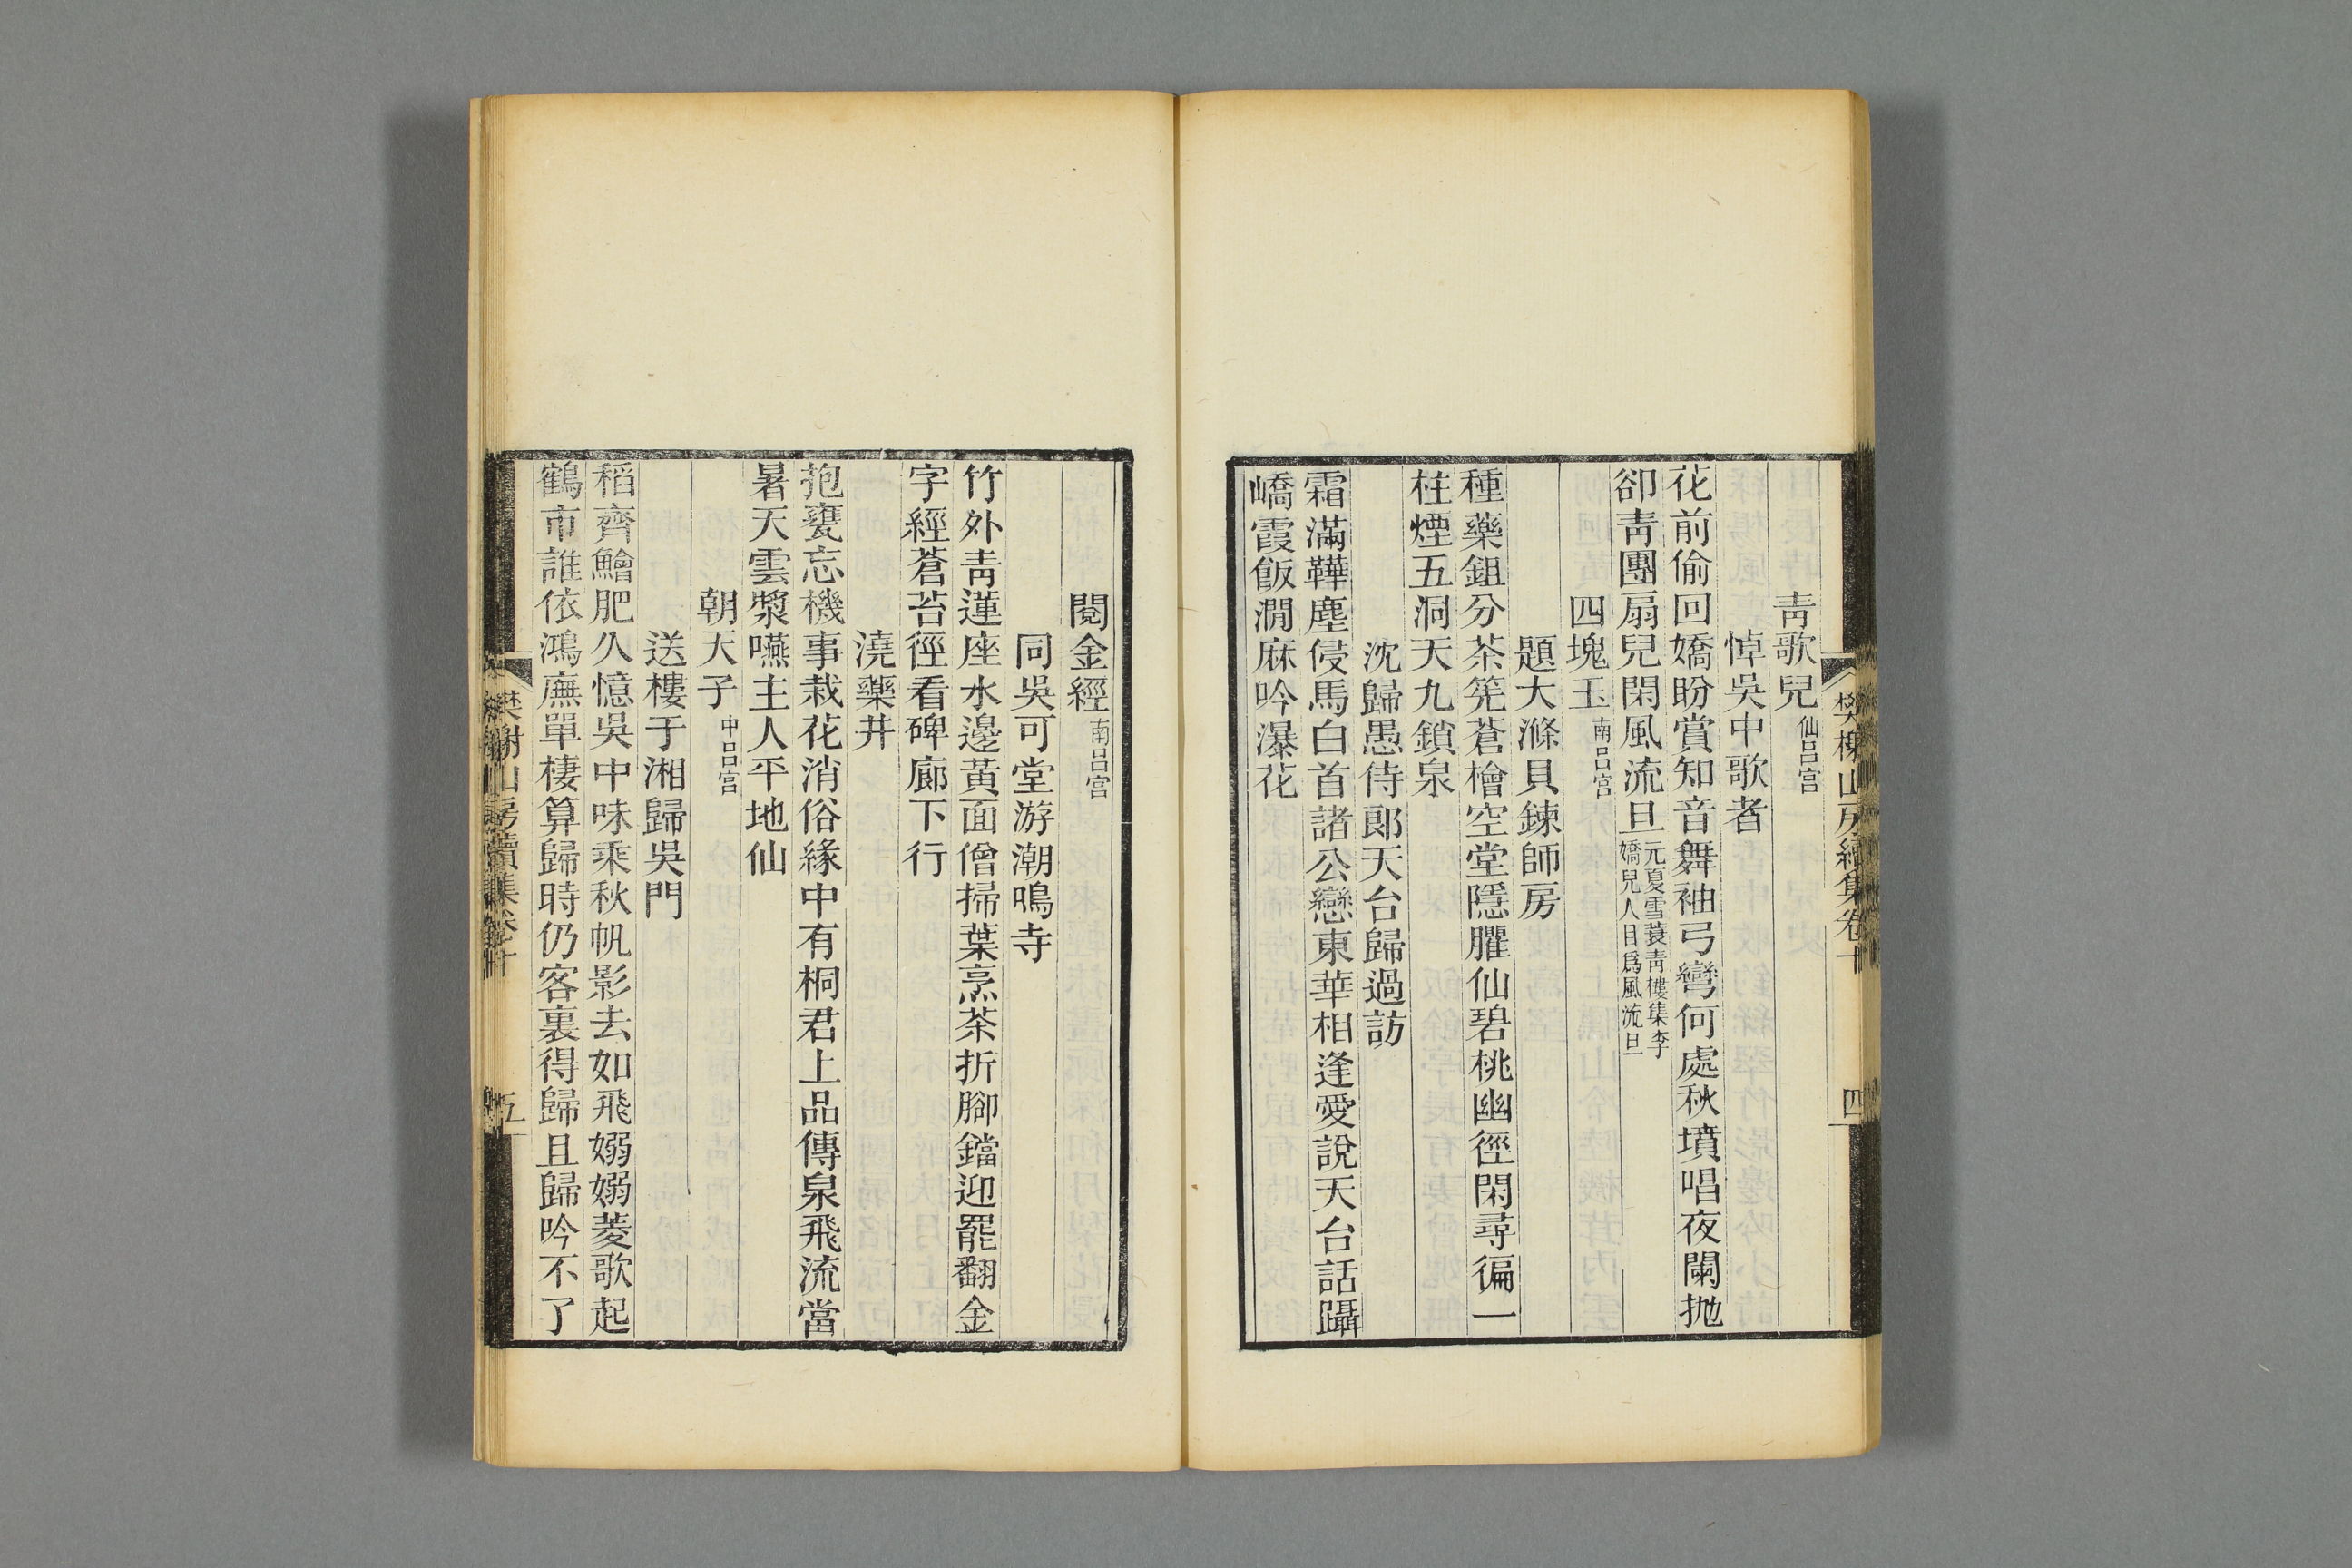 樊榭山房續集卷十
四
青歌兒仙呂宮
悼吳中歌者
花前偷回嬌盼賞知音舞袖弓彎何處秋墳唱夜闌拋
卻青團扇兒閑風流旦元夏雪蓑青樓集李嬌兒人目爲風流旦
四塊玉南呂宮
題大滌貝鍊師房
種藥鉏分茶筅蒼檜空堂隱臞仙碧桃幽徑閑尋徧一
柱煙五洞天九鎖泉
沈歸愚侍郎天台歸過訪
霜滿鞾塵侵馬白首諸公戀東華相逢愛說天台話躡
嶠霞飯澗麻吟瀑花
閱金經南呂宮
同吳可堂游潮鳴寺
竹外青蓮座水邊黃面僧掃葉烹茶折腳鐺迎罷翻金
字經蒼苔徑看碑廊下行
澆藥井
抱甕忘機事栽花消俗緣中有桐君上品傳泉飛流當
暑天雲漿嚥主人平地仙
朝天子中呂宮
送樓于湘歸吳門
稻齊鱠肥久憶吳中味乘秋帆影去如飛嫋嫋菱歌起
鶴市誰依鴻廡單棲算歸時仍客裏得歸且歸吟不了
樊榭山房續集卷十
五